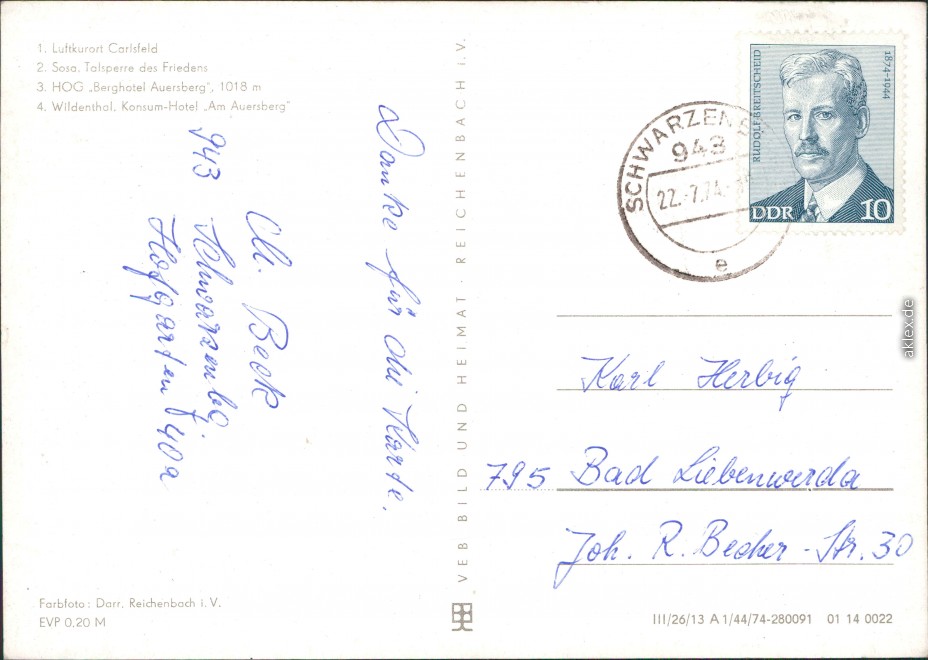 1. Luftkurort Carlsfeld
2. Sosa. Talsperre des Friedens
3. HOG „Berghotel Auersberg", 1018 m
4. Wildenthal. Konsum-Hotel „Am Auersberg"
Danke für die Karte.
M. Beck
943 Schwarzenbg.
Hofgarten 40a
Farbfoto: Darr, Reichenbach i. V.
EVP 0,20 M
VEB BILD UND HEIMAT · REICHENBACH i. V.
SCHWARZENB
943
22.-7.74.
e
RUDOLF BREITSCHEID
1874-1944
DDR 10
Karl Herbig
795 Bad Liebenwerda
Joh. R. Becher-Str. 30
III/26/13 A 1/44/74-280091 01 14 0022
aklex.de